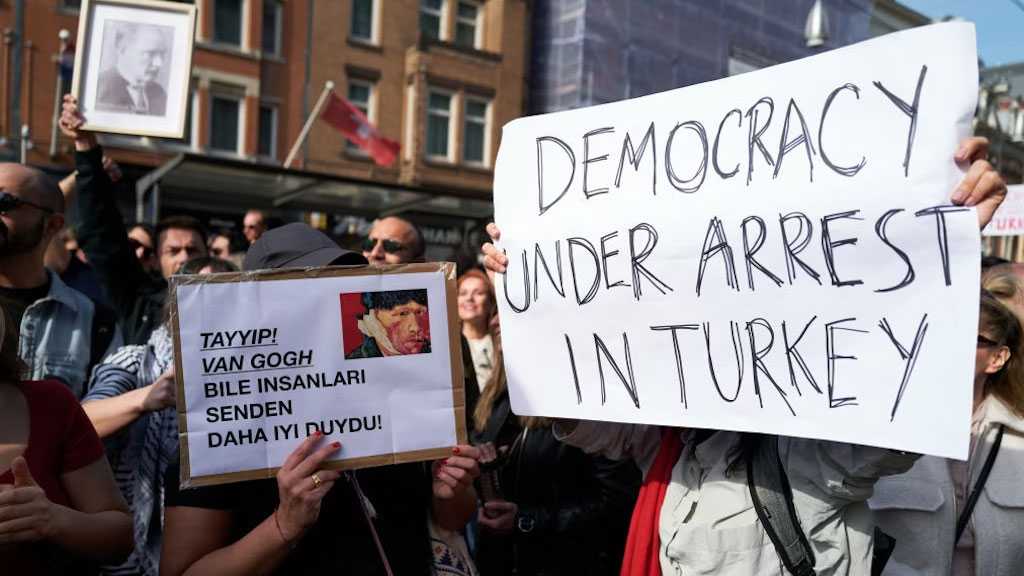 TAYYIP!
VAN GOGH
BILE INSANLARI
SENDEN
DAHA IYI DUYDU!
DEMOCRACY
UNDER ARREST
IN TURKEY